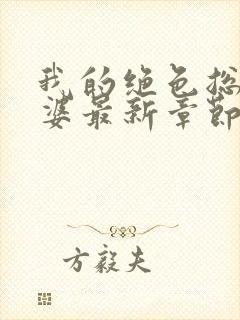 我的绝色总
婆最新章节
方毅夫